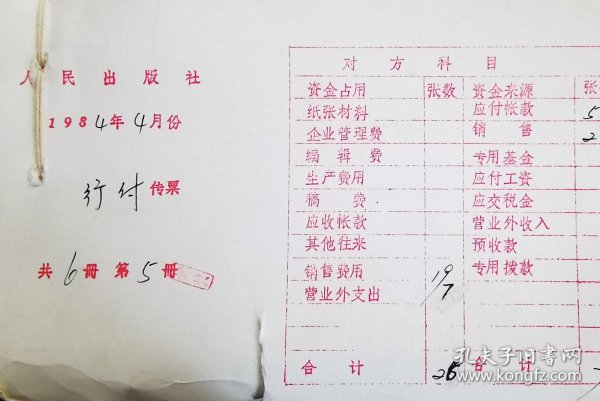 人民出版社
1984年4月份
行付传票
共6册 第5册
对方科目
资金占用 张数 资金来源 张
纸张材料 应付帐款 5
企业管理费 销售 2
编辑费 专用基金
生产费用 应付工资
稿费 应交税金
应收帐款 营业外收入
其他往来 预收款
销售费用 19 专用拨款
营业外支出 7
合计 26 合计
孔夫子旧书网
www.kongfz.com